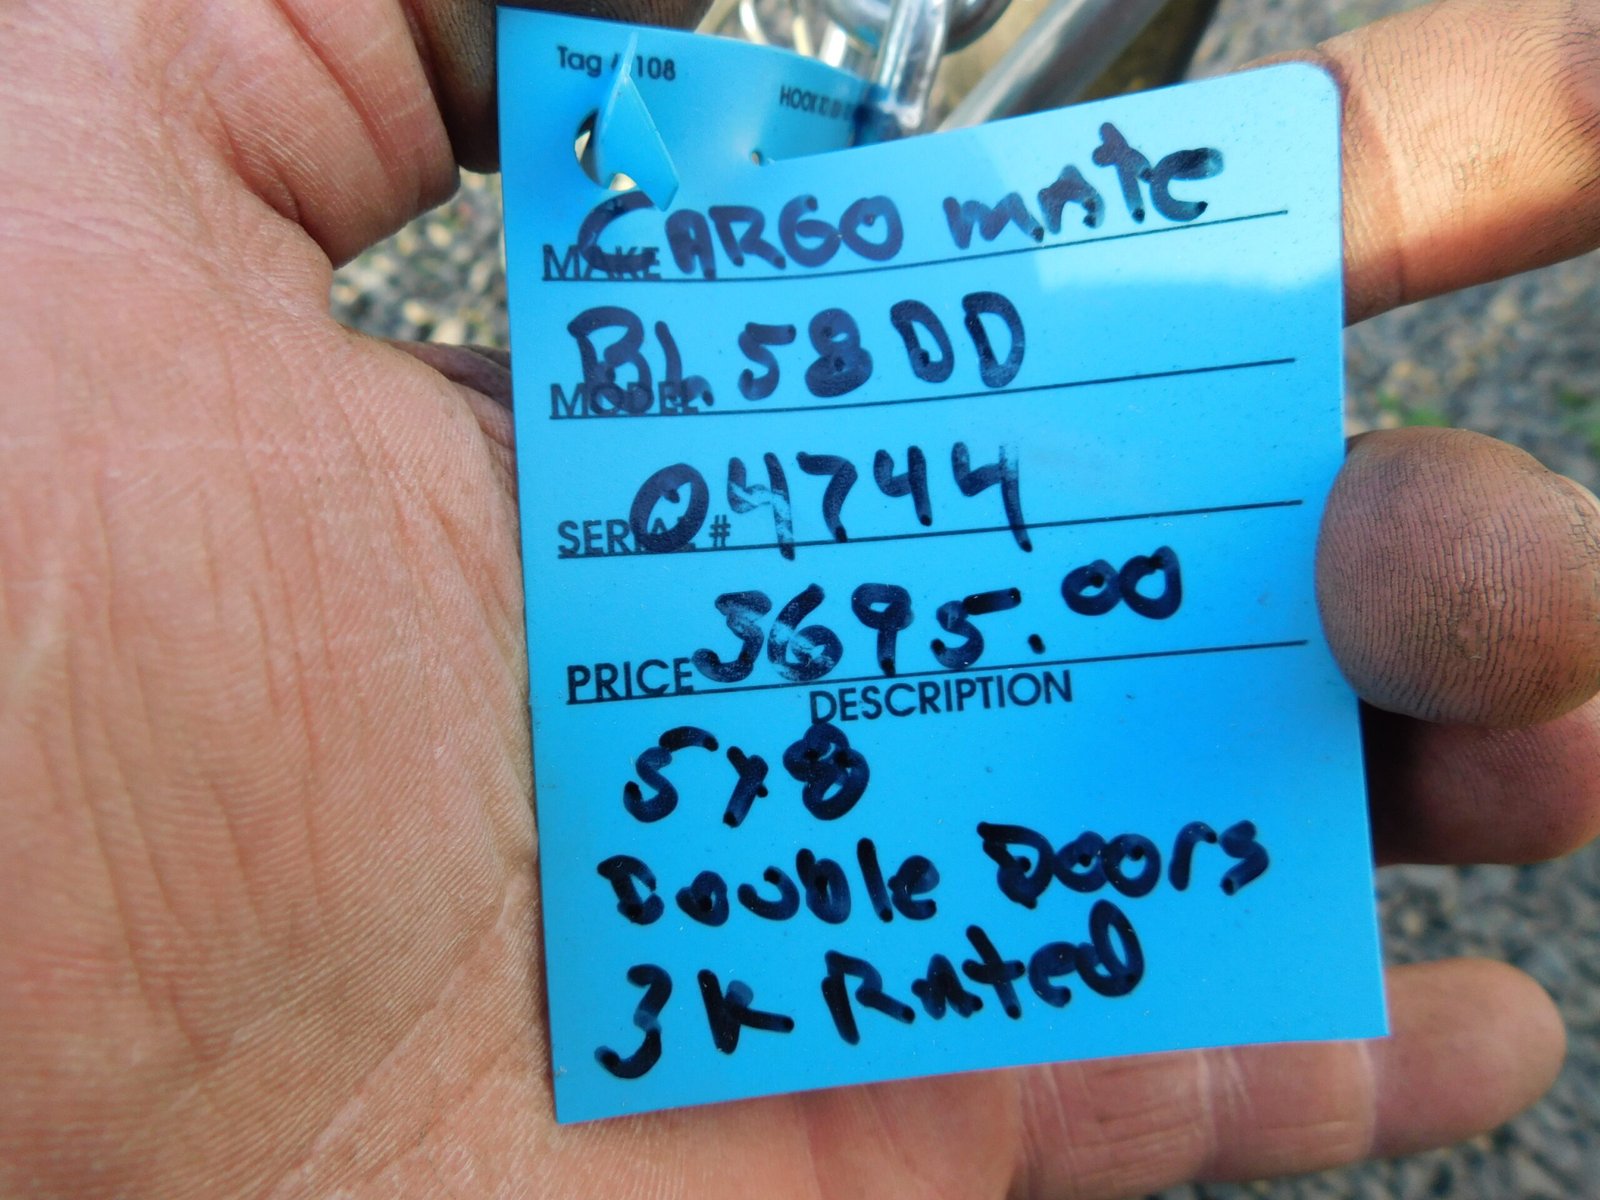 Tag # 108
MAKE CARGO mate
MODEL BL 58 DD
SERIAL # 04744
PRICE 3695.00
DESCRIPTION
5x8
Double Doors
3K Rated